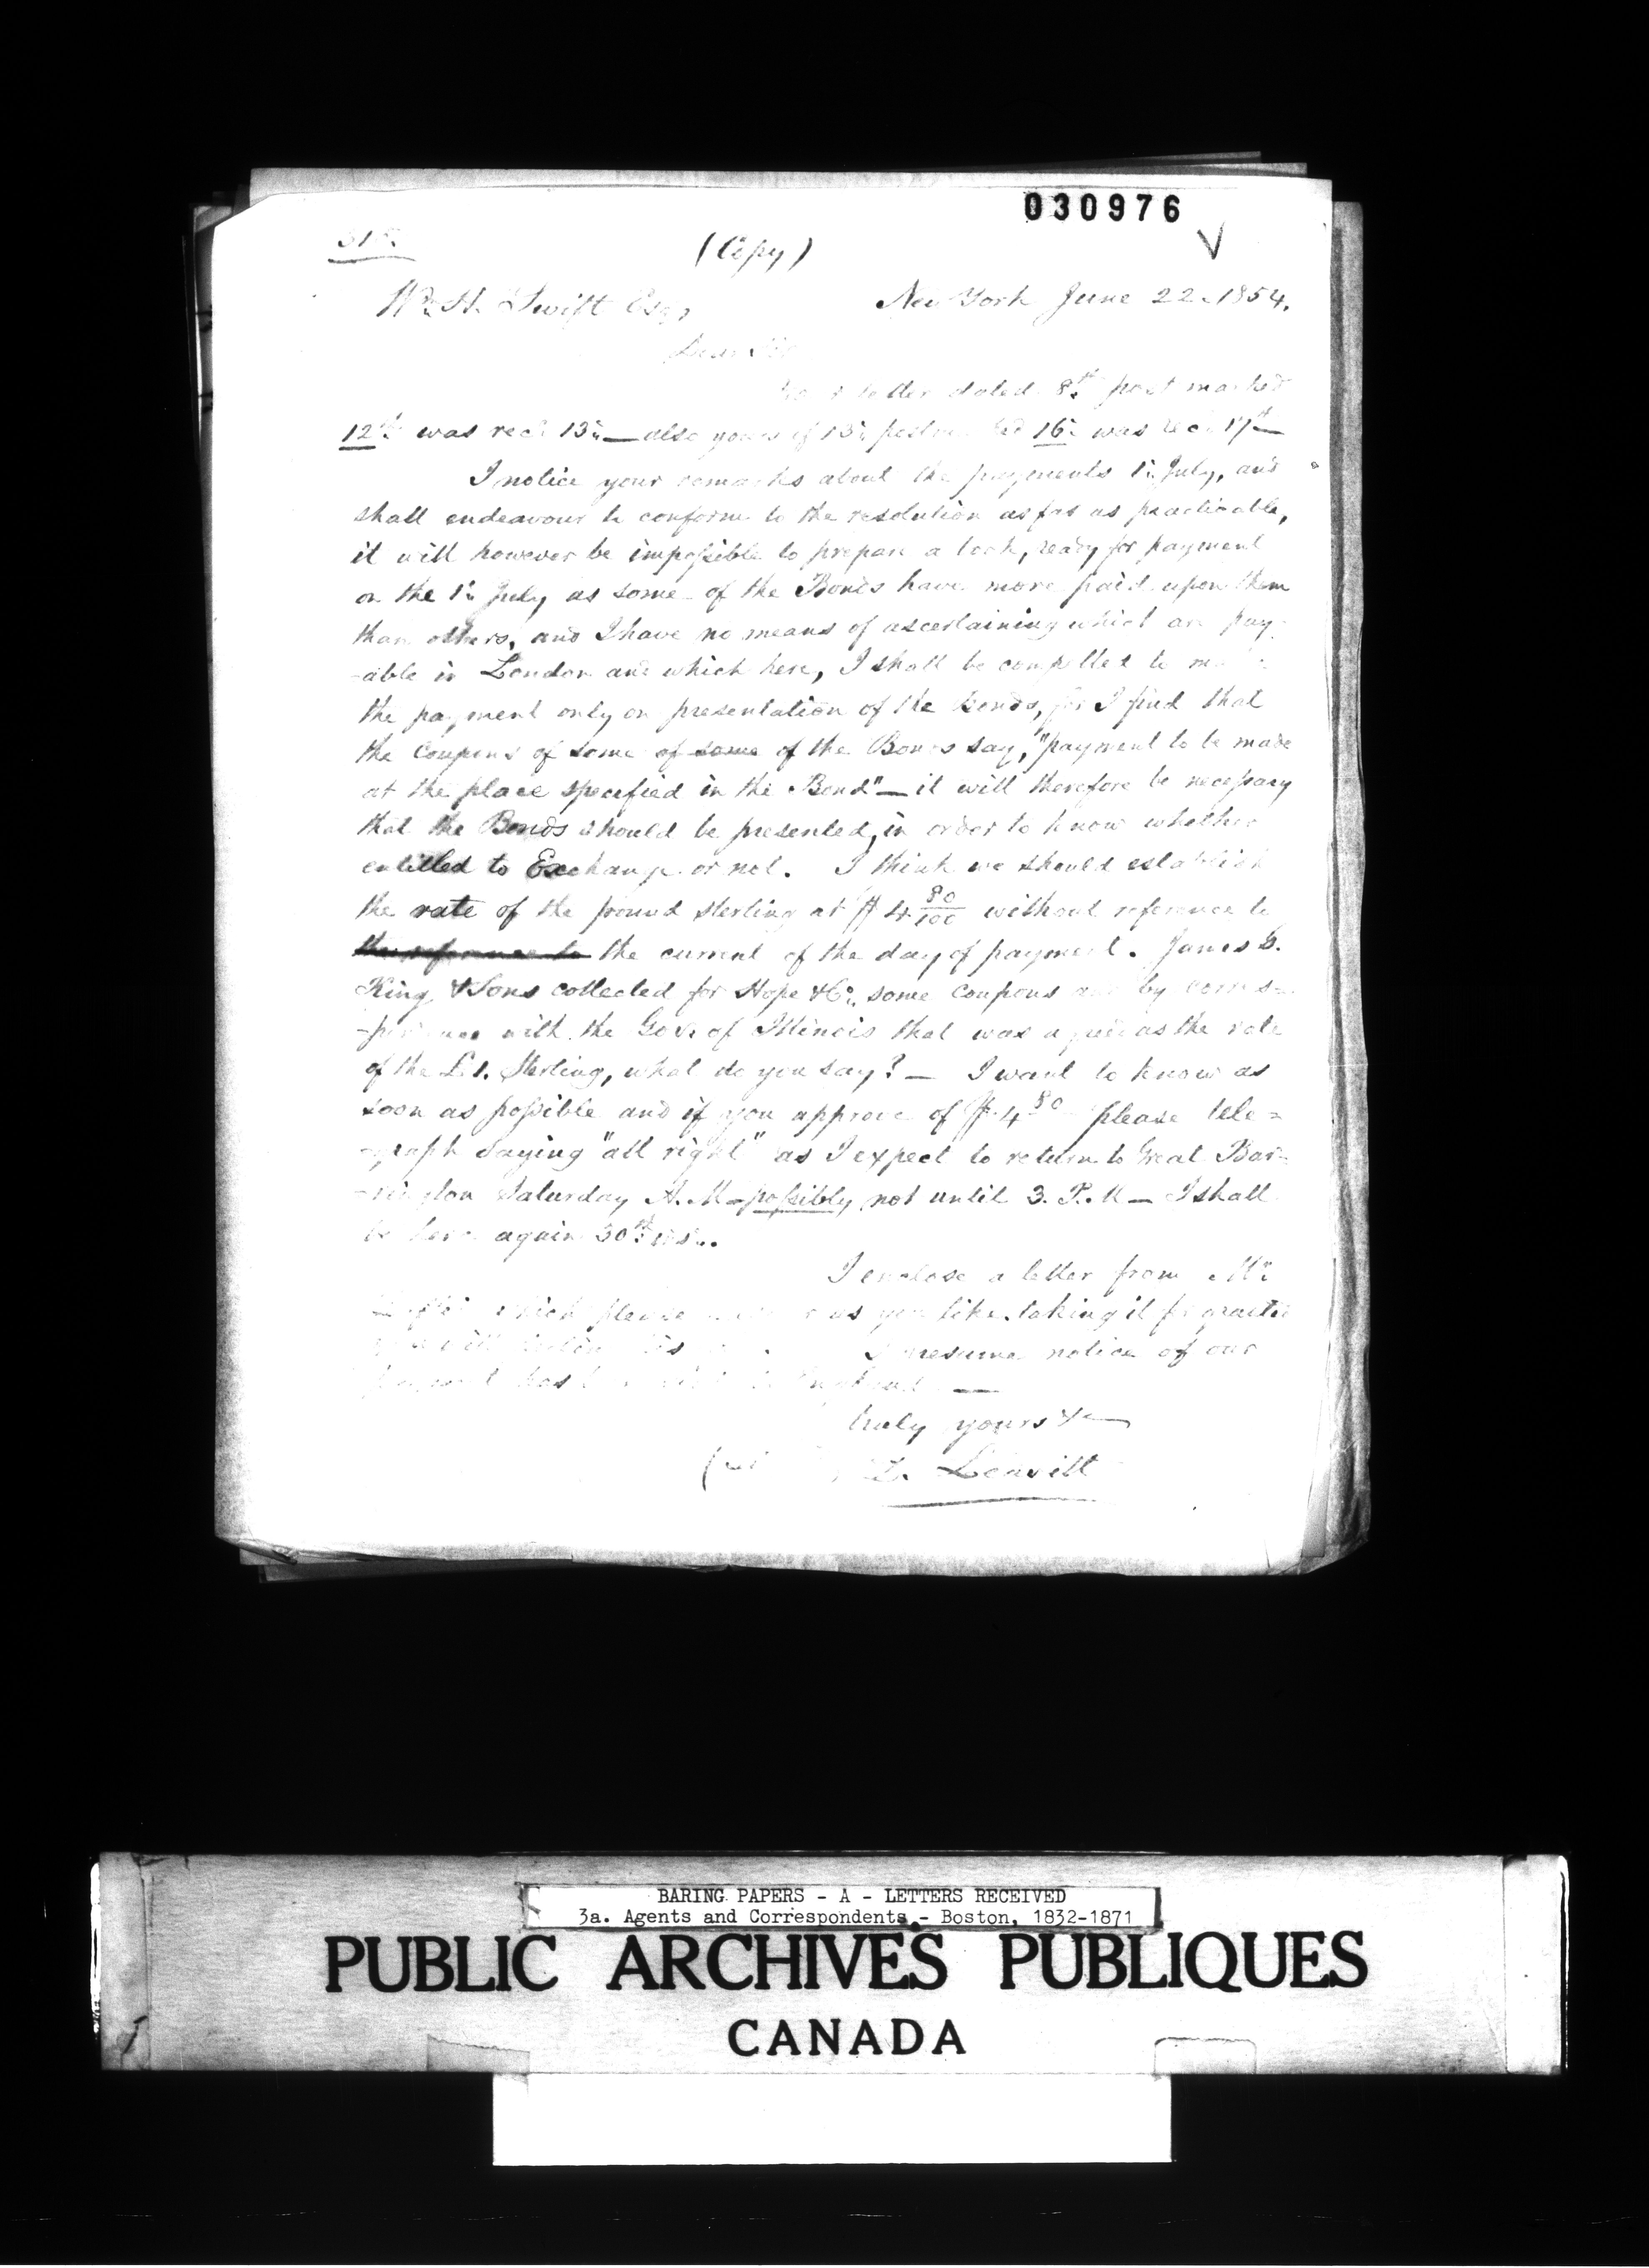 030976
(Copy)
Wm. H. Swift Esq,
New York June 22. 1854.
Dear Sir
letter dated 8th post marked
12th was recd 13th — also yours of 13th 16th was recd 17th —
I notice your remarks about the payments 1st July, and
shall endeavour to conform to the resolution as far as practicable,
it will however be impossible to prepare a book, ready for payment
on the 1st July as some of the Bonds have more paid upon them
than others, and I have no means of ascertaining which are pay-
-able in London and which here, I shall be compelled to
the payment only on presentation of the bonds, for I find that
the Coupons of some of some of the Bonds say, "payment to be made
at the place specified in the Bond" — it will therefore be necessary
that the Bonds should be presented, in order to know whether
entitled to Exchange or not. I think we should establish
the rate of the pound sterling at $4 80/100 without reference to
the reference to the current of the day of payment. James G.
King & Sons collected for Hope & Co. some coupons and by corres-
with the Gov. of Illinois that was agreed as the rate
of the £1. Sterling, what do you say? — I want to know as
soon as possible and if you approve of $4 80 please tele=
-graph saying "all right" as I expect to return to Great Bar=
-rington Saturday A.M — possibly not until 3. P.M — I shall
be here again 30th
I enclose a letter from Mr.
which please as you like, taking it for granted
I presume notice of our
has
truly yours &c —
Leavitt
BARING PAPERS - A - LETTERS RECEIVED
3a. Agents and Correspondents - Boston, 1832-1871
PUBLIC ARCHIVES PUBLIQUES
CANADA